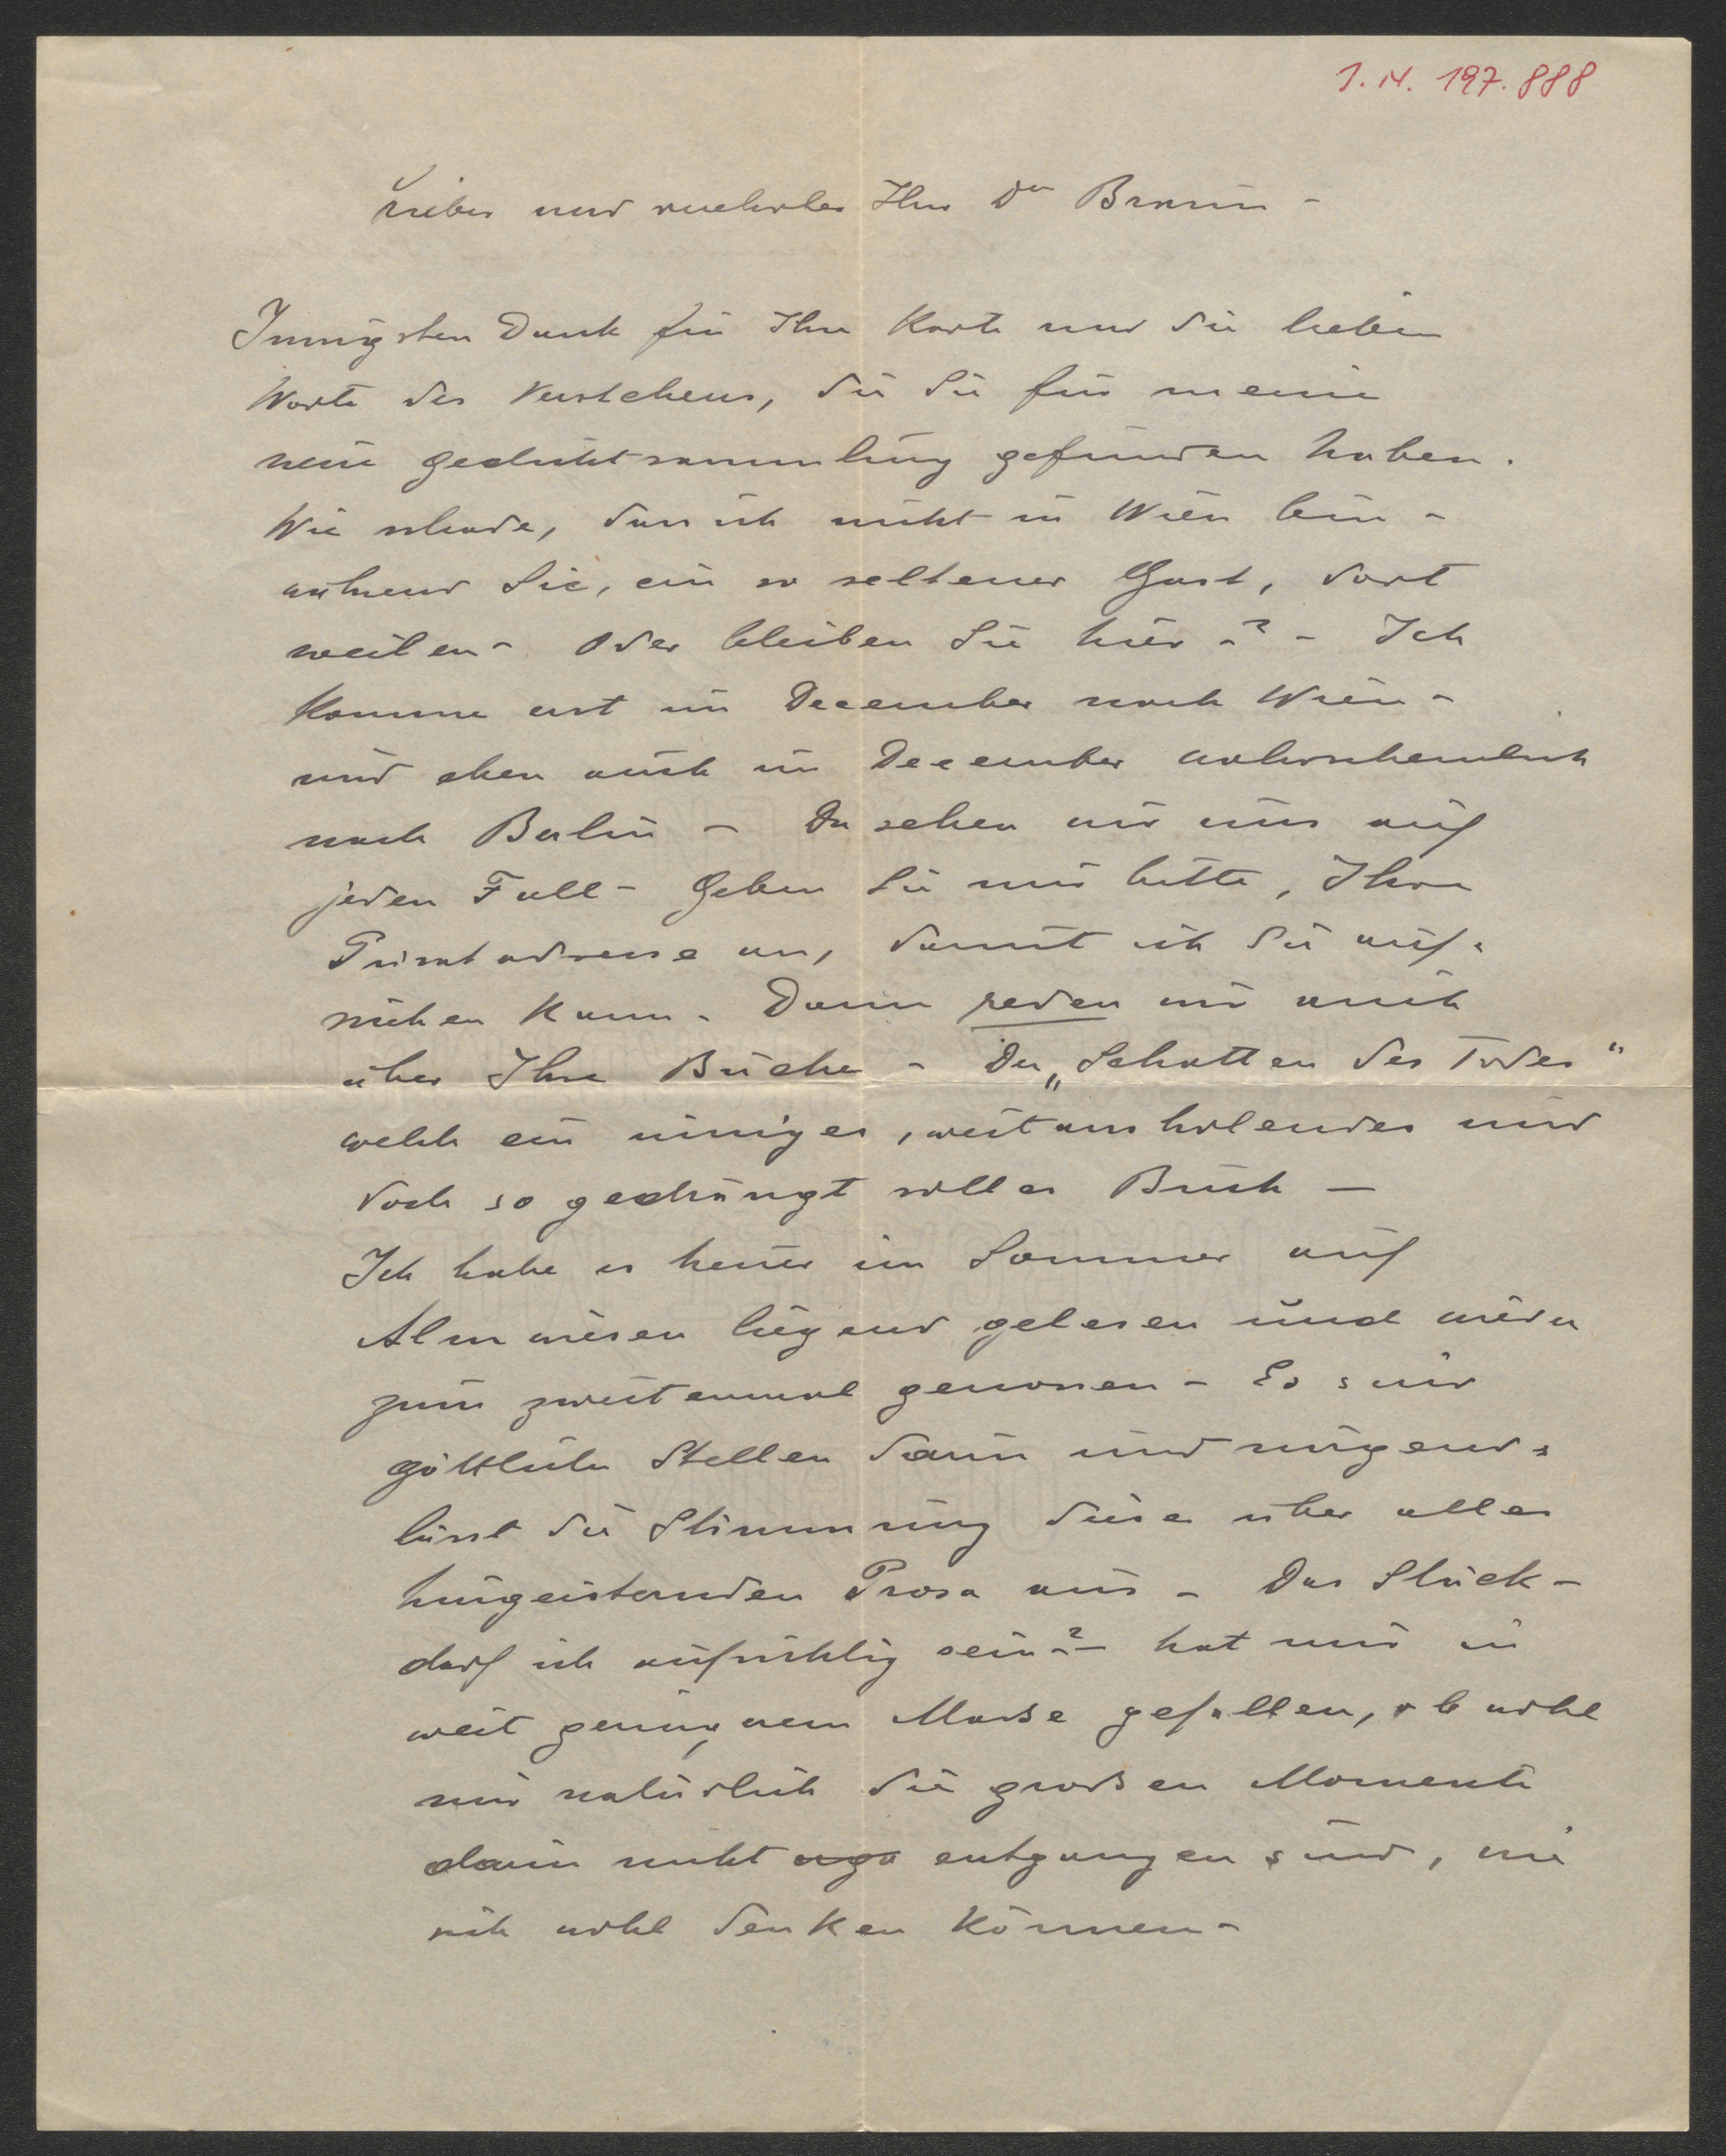 I. N. 197.888
Lieber und verehrter Herr Dr Braun -
Innigsten Dank für Ihre Karte und die lieben
Worte des Verstehens, die Sie für meine
neue Gedichtsammlung gefunden haben.
Wie schade, dass ich nicht in Wien bin -
während Sie, ein so seltener Gast, dort
weilen - Oder bleiben Sie hier -? - Ich
komme erst im December nach Wien -
und eben auch im December wahrscheinlich
nach Berlin - Da sehen wir uns auf
jeden Fall - Geben Sie mir bitte, Ihre
Privatadresse an, damit ich Sie auf-
suchen kann. Dann reden wir auch
über Ihre Bücher - Der „Schatten des Todes"
welch ein inniges, weitausholendes und
doch so gedrängt volles Buch —
Ich habe es heuer im Sommer auf
Almwiesen liegend gelesen und wieder
zum zweitenmal genossen - Es sind
göttliche Stellen darin und nirgends
lässt die Stimmung dieser über alles
hingeisternden Prosa aus - Das Stück -
darf ich aufrichtig sein -? - hat mir in
weit geringerem Maße gefallen, obwohl
mir natürlich die großen Momente
darin nicht entgangen sind, wie
sich wohl denken können -